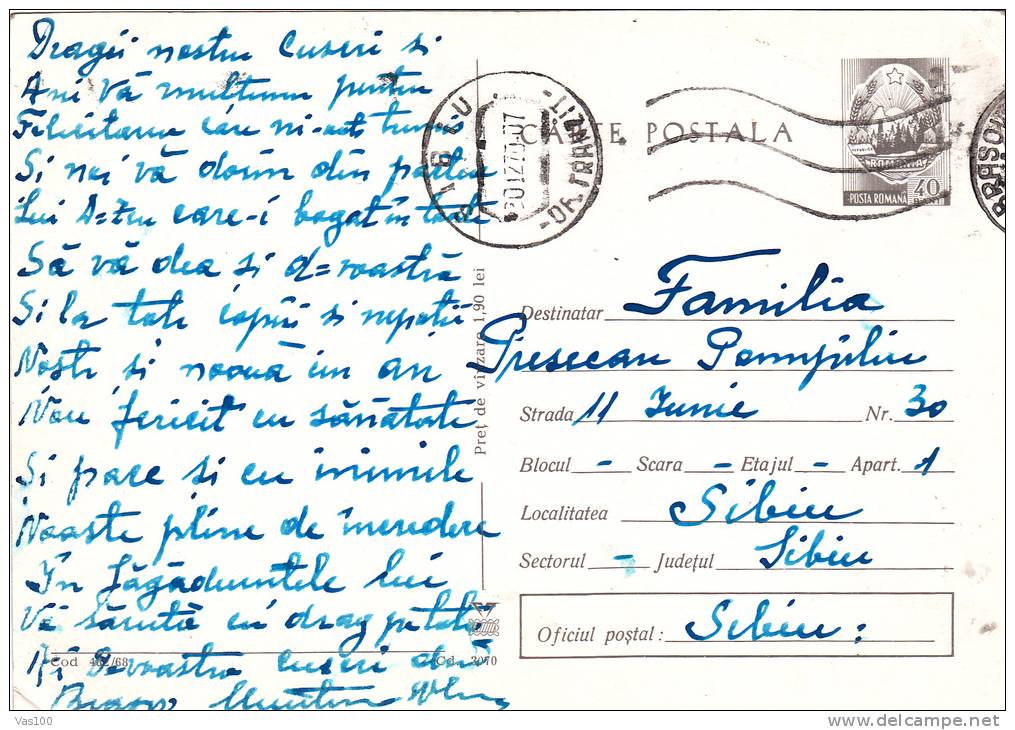 Dragii nostri Cuscri si
Ani Vă mulțumim pentru
Felicitarea care ni-ati trimis
Si noi vă dorim din partea
Lui D=zeu care-i bogat in toate
Să vă dea si d=voastră
Si la toti copiii si nepotii
Nostri si nouă un an
Nou fericit cu sănătate
Si pace si cu inimile
Noaste pline de incredere
In făgăduintele lui
Vă sărută cu drag pe toti
Ai Dvoastra cuscri
Brasov Muntean
Cod 462/68
Cd. 3070
Preț de vînzare 1,90 lei
CARTE POSTALA
SIBIU
OF. TRANZIT
BRASOV
ROMANIA
POSTA ROMANA
40
BANI
Destinatar Familia
Presecan Pompiliu
Strada 11 Iunie Nr. 30
Blocul - Scara - Etajul - Apart. 1
Localitatea Sibiu
Sectorul - Județul Sibiu
Oficiul poștal: Sibiu:
Vas100
http://www.delcampe.net